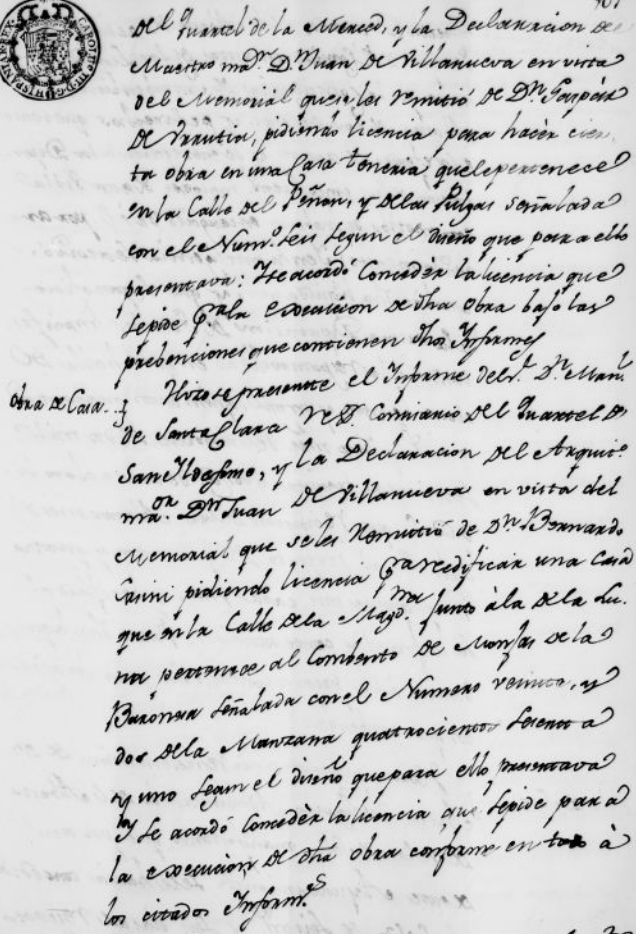 del Quartel de la Merced, y la Declaracion del
Maestro maor. Dn. Juan de Villanueva en vista
del Memorial que se les remitió de Dn. Gaspár
de Urrutia, pidiendo licencia para hacèr cier-
ta obra en una Casa teneria que le pertenece
en la Calle del Peñon, y de las Pulgas señalada
con el Numo. seis segun el diseño que para ello
presentava: Y se acordó Concedèr la licencia que
se pide pa. la execucion de dha obra bajo las
prebenciones que contienen dhos Informes
Obra de Casa.
Hizose presente el Informe del Sr. Dn. Manl.
de Santa Clara Comisario del Quartel de
San Yldefonso, y la Declaracion del Arquito.
maor. Dn Juan de Villanueva en vista del
Memorial que se les Remitió de Dn. Bernardo
pidiendo licencia pa reedificar una Casa
que en la Calle de la Magdna. junto à la de la Lu-
na pertenece al Combento de Monjas de la
Baronesa señalada con el Numero veinte, y
dos de la Manzana quatrocientos sesenta
y uno segun el diseño que para ello presentava
Y se acordó Concedèr la licencia que se pide para
la execucion de dha obra conforme en todo à
los citados Informs.